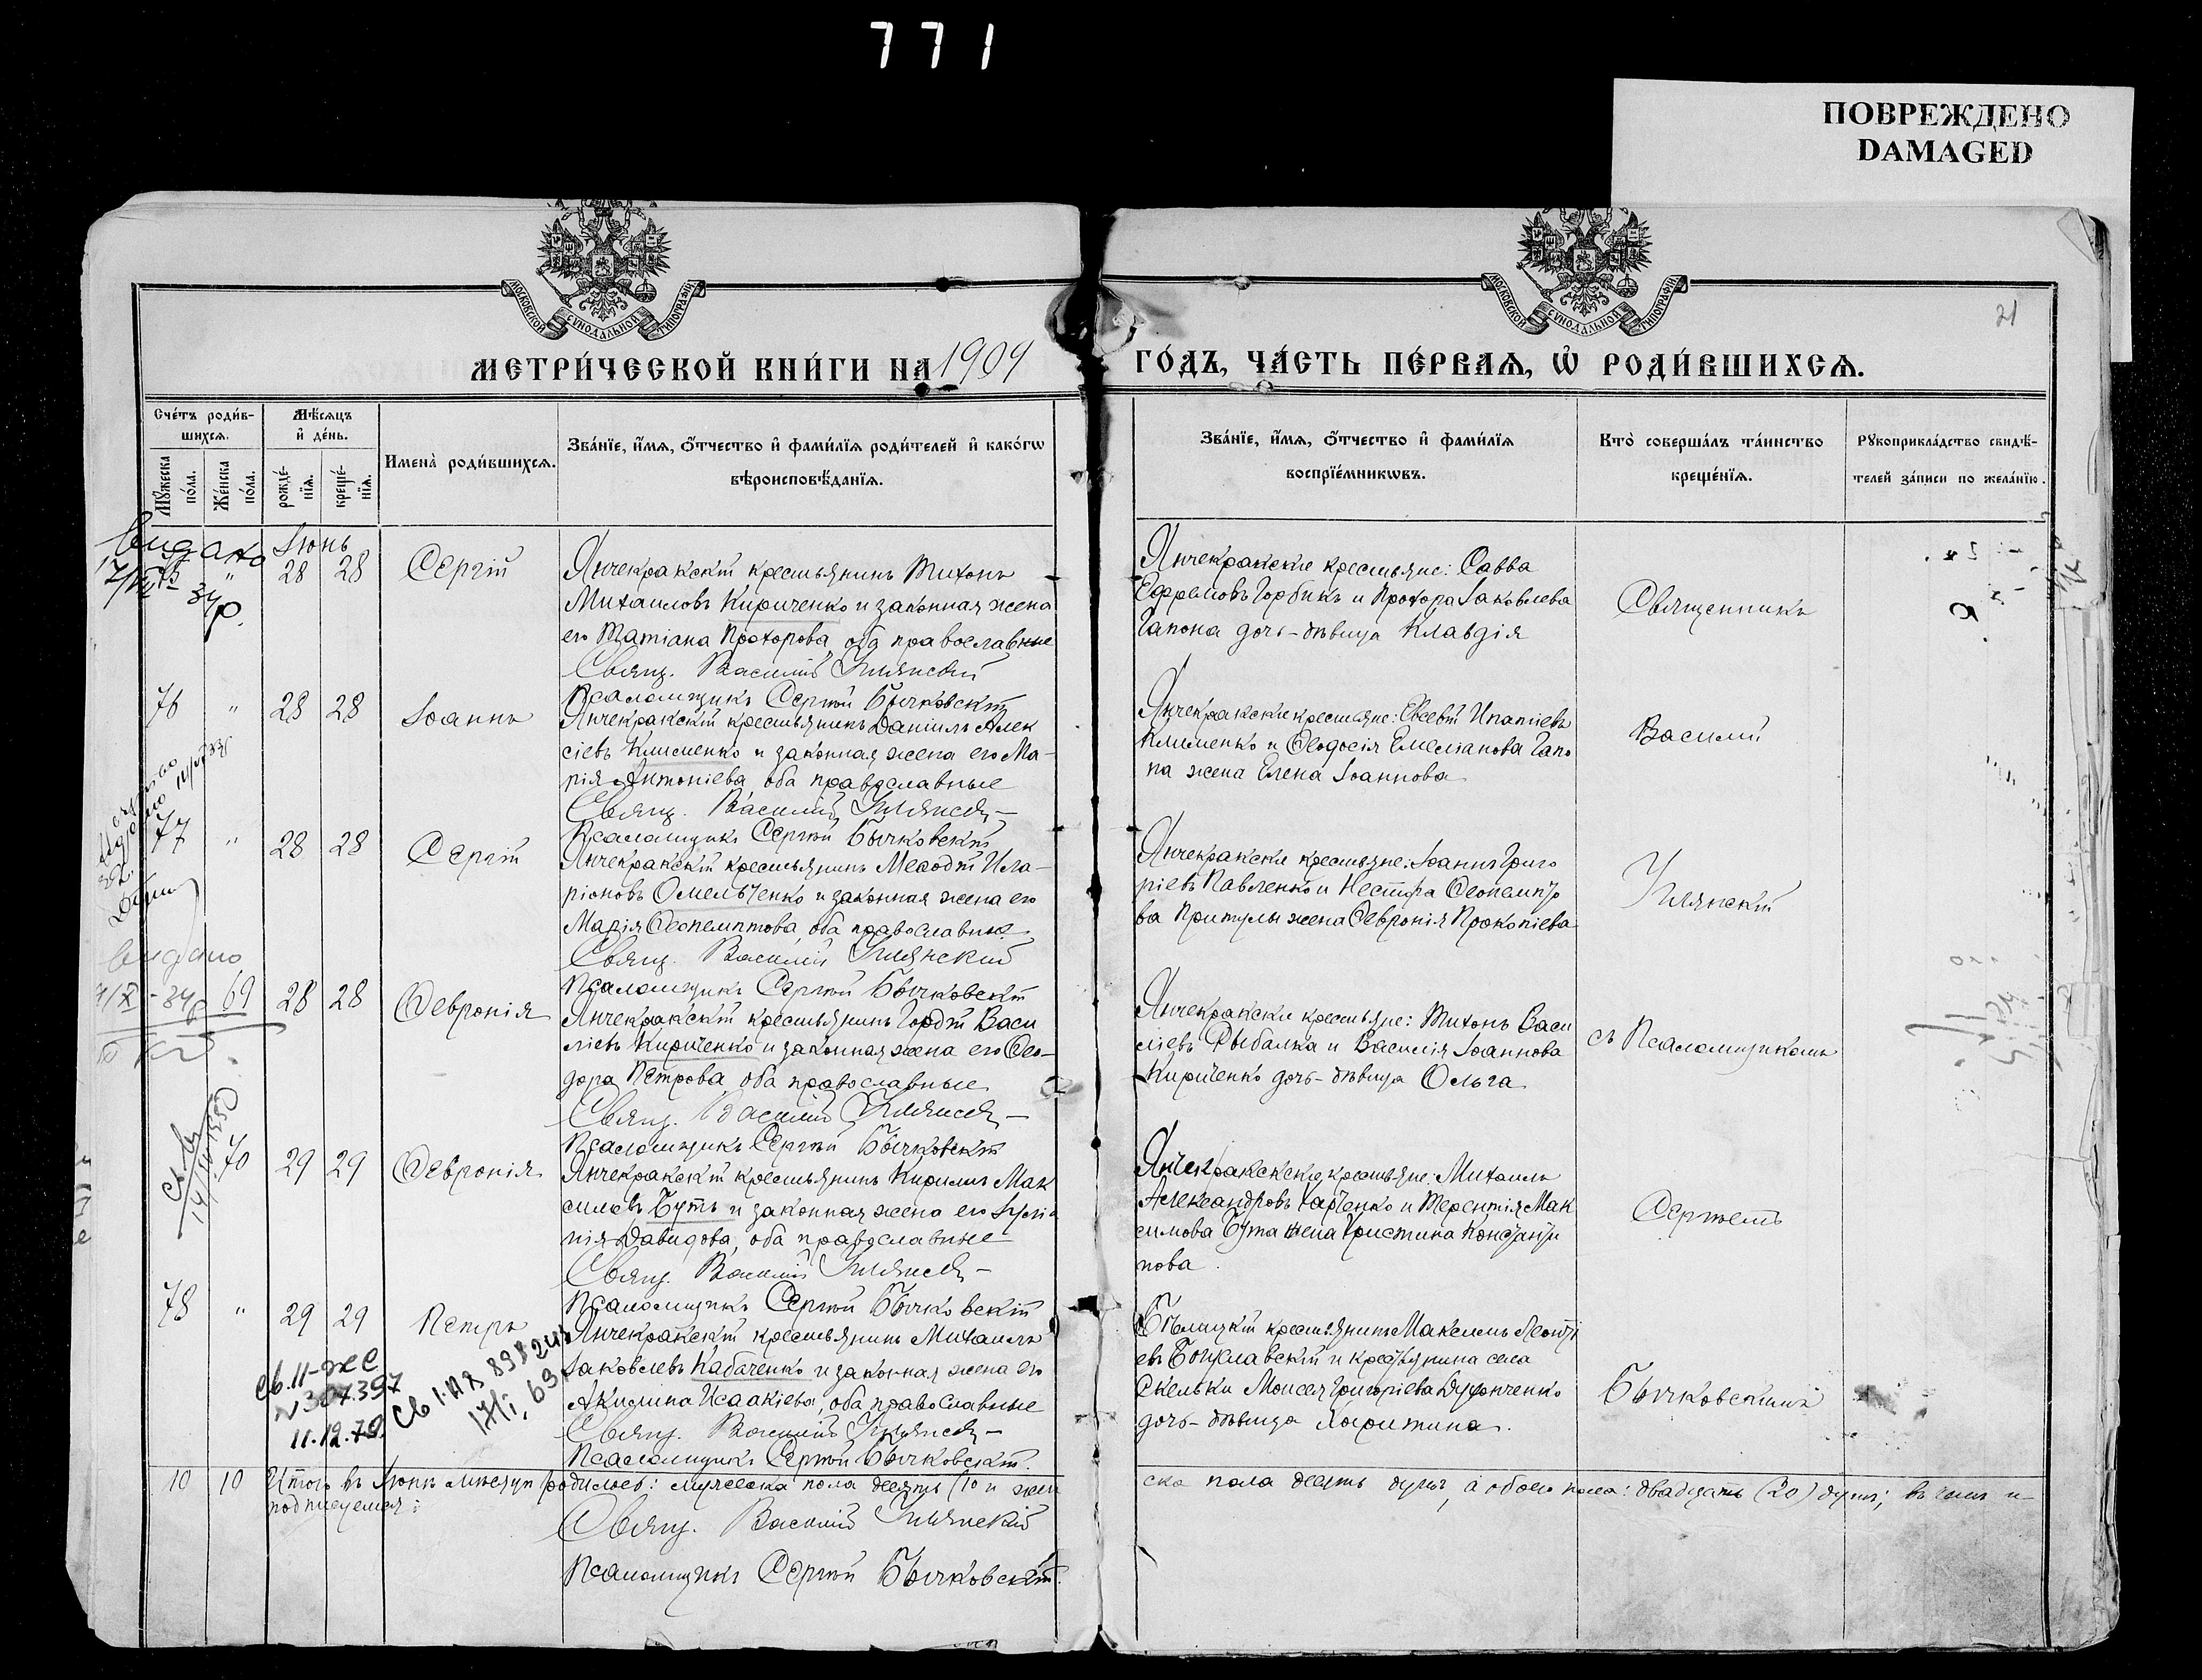 771
ПОВРЕЖДЕНО
DAMAGED
МОСКОВСКОЙ СУНОДАЛЬНОЙ ТИПОГРАФІИ
МОСКОВСКОЙ СУНОДАЛЬНОЙ ТИПОГРАФІИ
21
МЕТРИ́ЧЕСКОЙ КНИ́ГИ НА 1909
ГО́ДЪ, ЧА́СТЬ ПЕ́РВАЯ, Ѡ҆ РОДИ́ВШИХСЯ.
Сче́тъ роди́в-
шихся.
Мꙋ́жеска по́ла.
Же́нска по́ла.
Мѣ́сяцъ
и҆ де́нь.
рожде́-
нїя.
креще́-
нїя.
Имена̀ роди́вшихся.
Зва́нїе, и҆́мя, ѻ҆́тчество и҆ фами́лїя роди́телей и҆ како́гѡ
вѣроисповѣ́данїя.
Зва́нїе, и҆́мя, ѻ҆́тчество и҆ фами́лїя
воспрїе́мникѡвъ.
Кто̀ соверша́лъ та́инство
креще́нїя.
Рꙋкоприкла́дство свидѣ́-
телей за́писи по жела́нїю.
видано
Іюнь
34р.
" 28 28 Сергій
Янчекракскій крестьянинъ Тихонъ
Михаиловъ Кириченко и законная жена
его Татіана Прохорова, оба православные
Свящ. Василій Улянскій
Псаломщикъ Сергій Бычковскій
Янчекракскіе крестьяне: Савва
Ефремовъ Горбикъ и Прохора Іаковлева
Гапона дочь-дѣвица Клавдія
Священникъ
76 " 28 28 Іоаннъ
Янчекракскій крестьянинъ Даніилъ Алек
сіевъ Клименко и законная жена его Ма-
рія Антоніева, оба православные
Свящ. Василій Улянскій
Псаломщикъ Сергій Бычковскій
Янчекракскіе крестьяне: Евсевій Ипатіевъ
Клименко и Ѳеодосія Емеліанова Гапо
на жена Елена Іоаннова
Василій
77 " 28 28 Сергій
Янчекракскій крестьянинъ Меѳодій Ила-
ріоновъ Омельченко и законная жена его
Марія Ѳеопемптова, оба православные
Свящ. Василій Улянский
Псаломщикъ Сергій Бычковскій
Янчекракскіе крестьяне: Іоаннъ Григо
ріевъ Павленко и Нестора Ѳеопемпто
ва Притулы жена Ѳевронія Прокопіева
Улянскій
видано
69 28 28 Ѳевронія
Янчекракскій крестьянинъ Гордій Васи
ліевъ Кириченко и законная жена его Ѳео-
дора Петрова, оба православные
Свящ. Василій Улянскій
Псаломщикъ Сергій Бычковскій
Янчекракскіе крестьяне: Тихонъ Васи
ліевъ Рыбалка и Василія Іоаннова
Кириченко дочь-дѣвица Ольга
съ Псаломщикомъ
70 29 29 Ѳевронія
Янчекракскій крестьянинъ Кириллъ Мак
симовъ Бутъ и законная жена его
нія Давидова, оба православные
Свящ. Василій Улянскій
Псаломщикъ Сергій Бычковскій
Янчекракскіе крестьяне: Михаилъ
Александровъ Харченко и Терентія Мак
симова Бута жена Христина Константи
нова.
Сергіемъ
78 " 29 29 Петръ
Янчекракскій крестьянинъ Михаилъ
Іаковлевъ Кабаченко и законная жена его
Акилина Исаакіева, оба православные
Свящ. Василій Улянскій
Псаломщикъ Сергій Бычковскій.
крестьянинъ Максимъ Леонті
евъ Богуславскій и крестьянина села
Скельки Моисея Григоріева
дочь-дѣвица Харитина.
Бычковскимъ
св. II-ЖС
N 307397
11.12.79.
10 10 Итого въ Іюнѣ мѣсяцѣ родилось: мужеска пола десять (10 и жен
ска пола десять душъ, а обоего пола: двадцать (20) душъ; въ чемъ и
подписуемся:
Свящ. Василій Улянскій
Псаломщикъ Сергій Бычковскій.